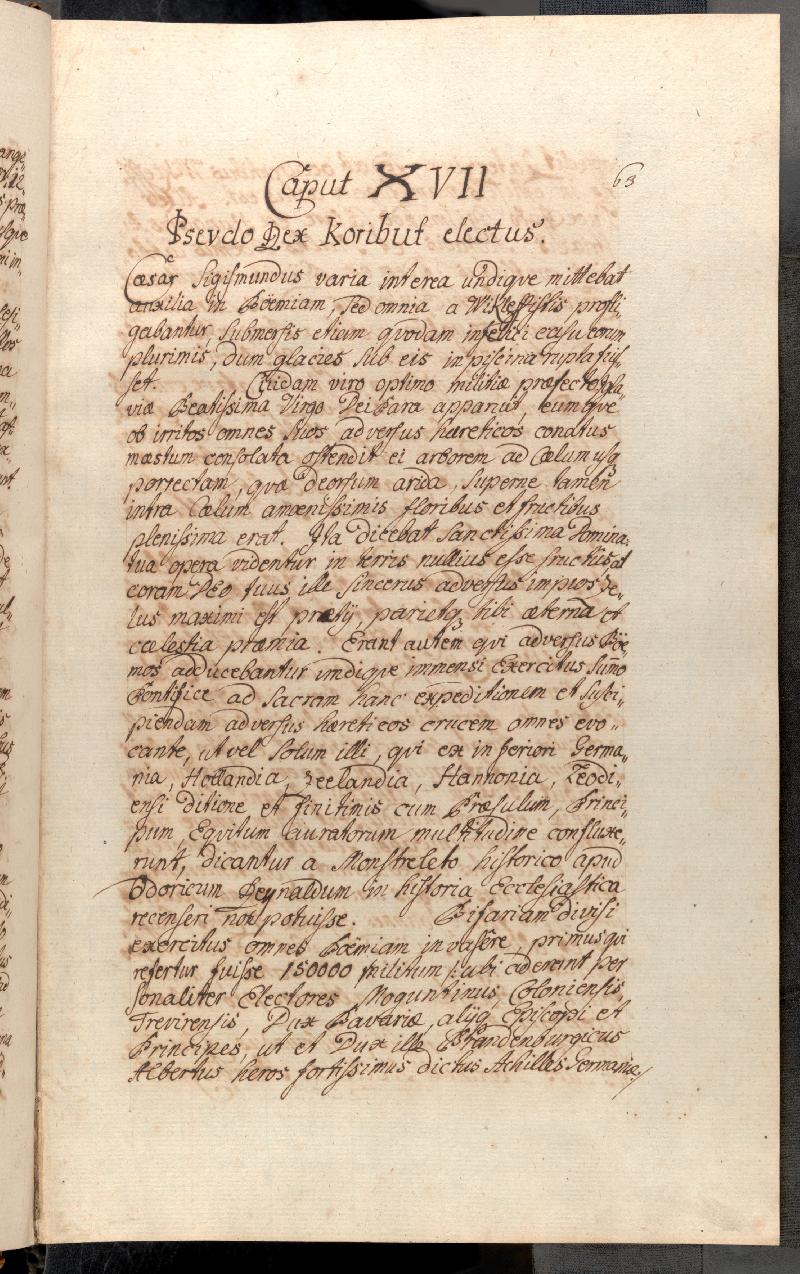 63
Caput XVII
Psevdo Rex Koribut electus.
Cæsar Sigismundus varia interea undiqve mittebat
auxilia in Böemiam, sed omnia a Wikleffistis profli„
gabantur, submersis etiam qvodam infelici casu eorum
plurimis, dum glacies sub eis in piscina rupta fuis„
set. Cuidam viro optimo militiæ præfecto
viæ Beatissima Virgo Dei para apparuit, eumqve
ob irritos omnes suos adversus hæreticos conatus
mæstum consolata ostendit ei arborem ad Cælum usq
porrectam, qvæ deorsum arida, superne tamen
intra Cælum amœnissimis floribus et fructibus
plenissima erat. Ita dicebat Sanctissima Domina:
tua opera videntur in terris nullius esse fructus at
coram Deo tuus ille sincerus adversus impios Ze„
lus maximi est pretij, parietq tibi æterna et
cœlestia præmia. Erant autem qvi adversus Böe„
mos adducebantur undiqve immensi Exercitus Sumo
Pontifice ad Sacram hanc expeditionem et susci„
piendam adversus hæreticos crucem omnes evo„
cante, ut vel solum illi, qvi ex inferiori Germa„
nia, Hollandia, Zeelandia, Hannonia, Leodi„
ensi ditione et finitimis cum Præsulum, Princi„
pum, Eqvitum auratorum multitudine confluxe„
runt, dicantur a Monstreleto historico apud
Odoricum Reynaldum in historia Ecclesiastica
recenseri non potuisse. Bifariam divisi
exercitus omnes Böemiam invasêre, primus qvi
refertur fuisse 150000 militum ubi aderant per
sonaliter Electores Moguntinus, Coloniensis
Trevirensis, Dux Bavariæ, alijq Episcopi et
Principes, ut et Dux ille Brandenburgicus
Albertus heros fortissimus dictus Achilles Germaniæ